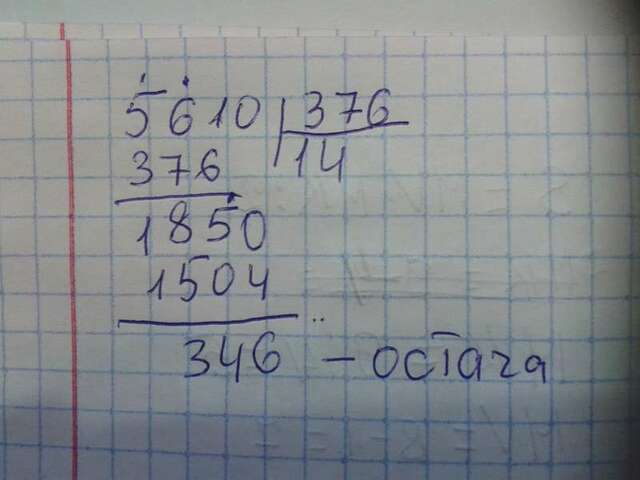 5610 376
376 14
1850
1504
346 - остача